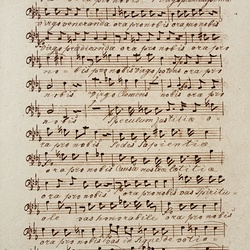 Virgo veneranda ora pro nobis ora pro nobis
Virgo prædicanda ora pro nobis ora pro
nobis pro nobis Virgo potens ora pro
nobis Virgo Clemens ora pro nobis ora
nobis Speculum justitiæ o-
ra pro nobis Sedes sapientiæ
ora pro nobis Causa nostræ lætitiæ
ora pro nobis ora pro nobis vas Spiritu-
ale vas honorabile ora pro nobis
ora pro nobis vas insigne devotio-